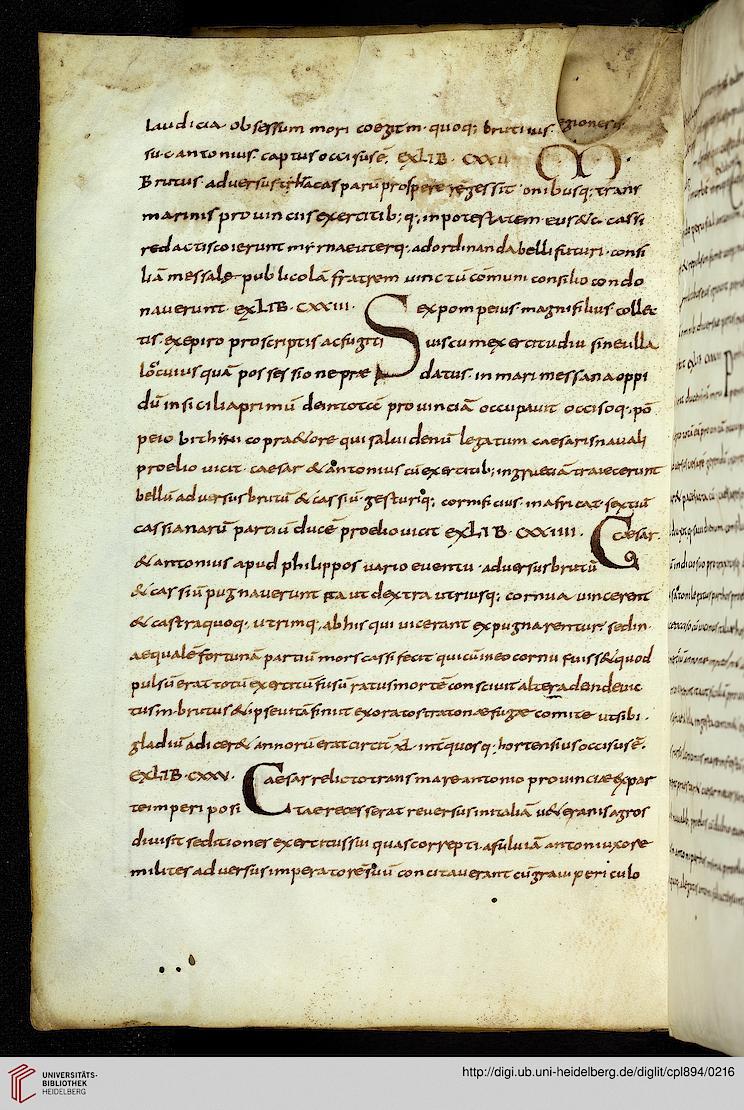 laudicia obsessum mori coegit m. quoq; brutiuis. egionesis
su. c. antonius captus occisus ē. EX LIB. CXXII M.
Brutus adversus thracas parū prospere res gessit onībusq; trans
marinis provinciis exercitib; q; in potestatem eius & c. cassi
redactis coierunt myrnae uterq; ad ordinanda belli futuri consi
liā messale publicolā fratrem vinctū cōmuni consilio condo
naverunt. EX LIB. CXXIII. Sex pompeius magni filius collec
tis. ex epiro proscriptis ac fugiti viis cum exercitu diu sine ulla
loci cuius quā possessione præ datus. in mari messana oppi
dū in sicilia primū dein totā provinciā occupavit occisoq. pō
peio bithini co pra&ore qui salvidenū legatum caesaris navali
proelio vicit. caesar & antonius cū exercitib; in grætiā traiecerunt
bellū adversus brutū & cassiū gesturi q; cornificius. in africa t. sextiū
cassianarū partiū ducē proelio vicit EX LIB. CXXIIII. Caesar.
& antonius apud philippos vario eventu. adversus brutū
& cassiū pugnaverunt ita ut dextra utriusq; cornua vincerent
& castra quoq. utrimq; ab his qui vicerant expugnarentur. sed in
aequalē fortunā partiū mors cassi fecit qui cū in eo cornu fuiss& quod
pulsū erat totū exercitū fusū ratus mortē conscivit altera dendevic
tus m. brutus & ipse vitā finiit exorato stratonæ fugæ comite ut sibi.
gladiū adicer& annorū erat circit̄ XL. int̄ quos q. hortensius occisus ē.
EX LIB. CXXV. Caesar relicto trans mare antonio provinciæ ex par
te imperi posi tae recesserat reversus in italiā v&eranis agros
divisit seditiones exercitus sui quas correpti. a fulviā antoni uxore
milites adversus imperatorē suū concitaverant cū gravi periculo
UNIVERSITÄTS-
BIBLIOTHEK
HEIDELBERG
http://digi.ub.uni-heidelberg.de/diglit/cpl894/0216